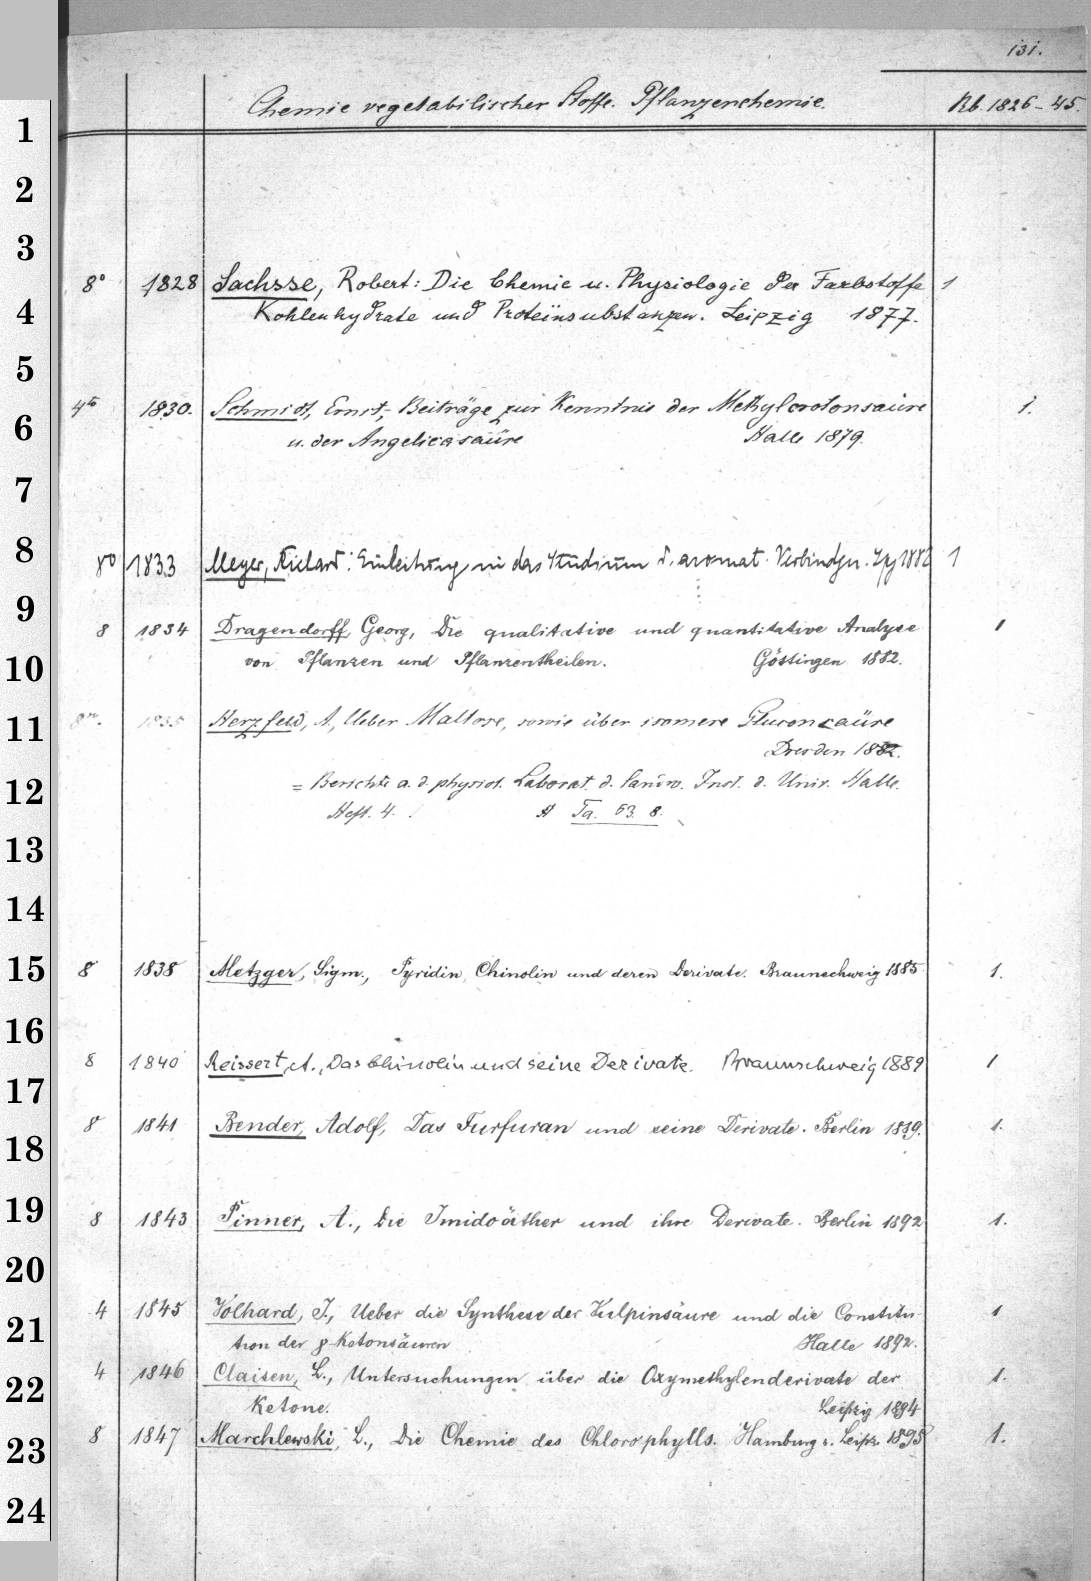 131.
Chemie vegetabilischer Stoffe. Pflanzenchemie. Rb. 1826-45.
8° 1828 Sachsse, Robert: Die Chemie u. Physiologie der Farbstoffe 1
Kohlenhydrate und Proteïnsubstanzen. Leipzig 1877.
4to 1830. Schmidt, Ernst, Beiträge zur Kenntnis der Methylcrotonsaüre 1.
u. der Angelicasaüre Halle 1879.
8° 1833 Meyer, Richard: Einleitung in das Studium d. aromat. Verbindgn. Lpz 1882 1
8 1834 Dragendorff, Georg, Die qualitative und quantitative Analyse 1
von Pflanzen und Pflanzentheilen. Göttingen 1882.
1835 Herzfeld, A, Ueber Maltose, sowie über isomere Gluconsaüre
Dresden 1882.
= Berichte a. d. physiol. Laborat. d. landw. Inst. d. Univ. Halle.
Heft. 4. Ta. 63. 8.
8 1838 Metzger, Sigm., Pyridin, Chinolin und deren Derivate. Braunschweig 1885 1.
8 1840 Reissert, A., Das Chinolin und seine Derivate. Braunschweig 1889 1
8 1841 Bender, Adolf, Das Furfuran und seine Derivate. Berlin 1889. 1.
8 1843 Pinner, A., Die Imidoäther und ihre Derivate. Berlin 1892 1.
4 1845 Volhard, J., Ueber die Synthese der Vulpinsäure und die Constitu- 1
tion der Ketonsäuren Halle 1892.
4 1846 Claisen, L., Untersuchungen über die Oxymethylenderivate der 1.
Ketone. Leipzig 1894
8 1847 Marchlewski, L., Die Chemie des Chlorophylls. Hamburg u. Leipz. 1895 1.
1
2
3
4
5
6
7
8
9
10
11
12
13
14
15
16
17
18
19
20
21
22
23
24